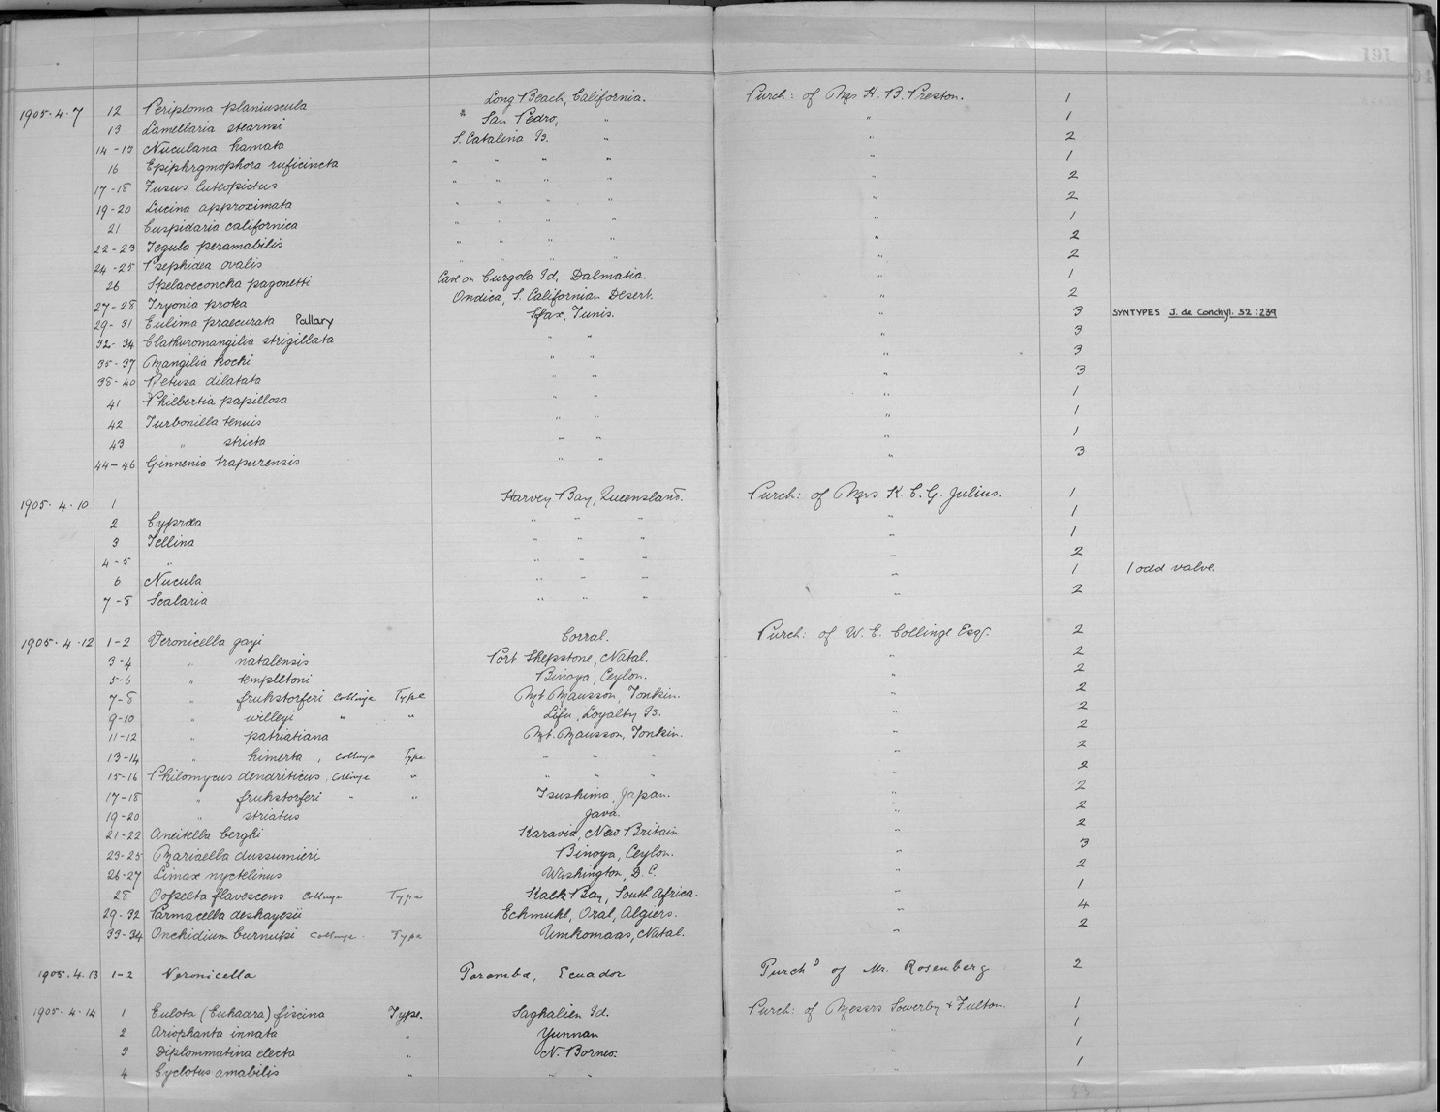 1905.4.7 12 Periploma planiuscula Long Beach, California. Purch: of Mrs H. B. Preston. 1
13 Lamellaria stearnsi " San Pedro, " " 1
14-15 Nuculana hamata S. Catalina Is. " " 2
16 Epiphrgmophora ruficincta " " " " " 1
17-18 Fusus luteopictus " " " " " 2
19-20 Lucina approximata " " " " " 2
21 Cuspidaria californica " " " " " 1
22-23 Tegula peramabilis " " " " " 2
24-25 Psephidea ovalis " " " " " 2
26 Spelaeoconcha paganetti Cave on Curzola Id, Dalmatia. " 1
27-28 Tryonia protea Ondica, S. Californian Desert. " 2
29-31 Eulima praecurata Pallary Sfax, Tunis. " 3 SYNTYPES J. de Conchyl. 52:239
32-34 Clathuromangilia strigillata " " " 3
35-37 Mangilia kochi " " " 3
38-40 Retusa dilatata " " " 3
41 Philbertia papillosa " " " 1
42 Turbonilla tenuis " " " 1
43 " stricta " " " 1
44-46 Ginnenia trapurensis " " " 3
1905.4.10 1 Harvey Bay, Queensland. Purch: of Mrs K. C. G. Julius. 1
2 Cypræa " " " " 1
3 Tellina " " " " 1
4-5 " " " " " 2
6 Nucula " " " " 1 1 odd valve.
7-8 Scalaria " " " " 2
1905.4.12 1-2 Veronicella gayi Corral. Purch: of W. E. Collinge Esqr. 2
3-4 " natalensis Port Shepstone, Natal. " 2
5-6 " templetoni Binoya, Ceylon. " 2
7-8 " fruhstorferi Collinge Type Mt Mausson, Tonkin. " 2
9-10 " willeyi " " Lifu, Loyalty Is. " 2
11-12 " patriatiana Mt. Mausson, Tonkin. " 2
13-14 " himerta, Collinge Type " " " 2
15-16 Philomycus dendriticus, Collinge " " " " " 2
17-18 " fruhstorferi " " Tsushima, Japan. " 2
19-20 " striatus Java. " 2
21-22 Aneitella berghi Karavia, New Britain " 2
23-25 Mariaella dussumieri Binoya, Ceylon. " 3
26-27 Limax nyctelinus Washington, D.C. " 2
28 Oopelta flavescens Collinge Type Kalk Bay, South Africa. " 1
29-32 Parmacella deshayesii Eckmuhl, Oral, Algiers. " 4
33-34 Onchidium burnupi Collinge. Type Umkomaas, Natal. " 2
1905.4.13 1-2 Veronicella Paramba, Ecuador Purchd of Mr. Rosenberg 2
1905.4.14 1 Eulota (Euhadra) fiscina Type. Saghalien Id. Purch: of Messrs Sowerby & Fulton. 1
2 Ariophanta innata " Yunnan " 1
3 Diplommatina electa " N. Borneo. " 1
4 Cyclotus amabilis " " " " 1